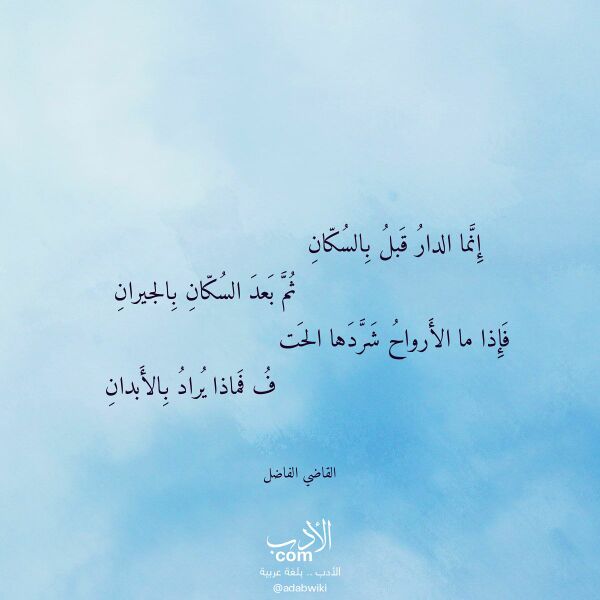 إِنَّما الدارُ قَبلُ بِالسُكّانِ
ثُمَّ بَعدَ السُكّانِ بِالجيرانِ
فَإِذا ما الأَرواحُ شَرَّدَها الحَت
فُ فَماذا يُرادُ بِالأَبدانِ
القاضي الفاضل
الأدب
com
الأدب .. بلغة عربية
@adabwiki